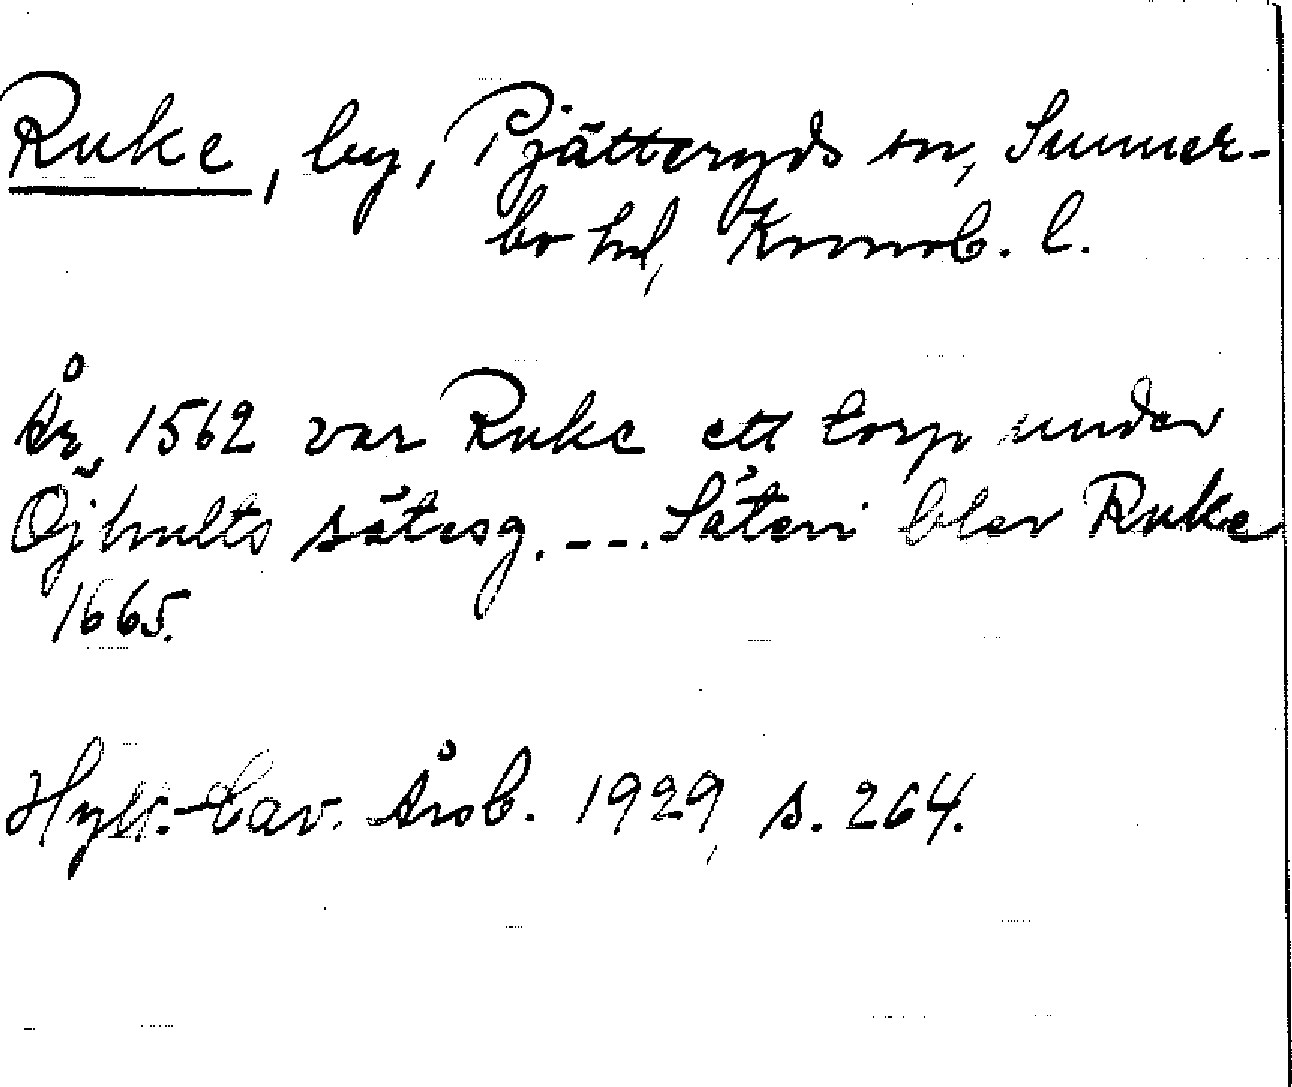 Ruke, by, Pjätteryds sn, Sunner-
bo hd, Kronob. l.
År 1562 var Ruke ett torp under
Öjhults sätesg. --. Säteri blev Ruke
1665.
Hylt.-Cav. Årsb. 1929, s. 264.